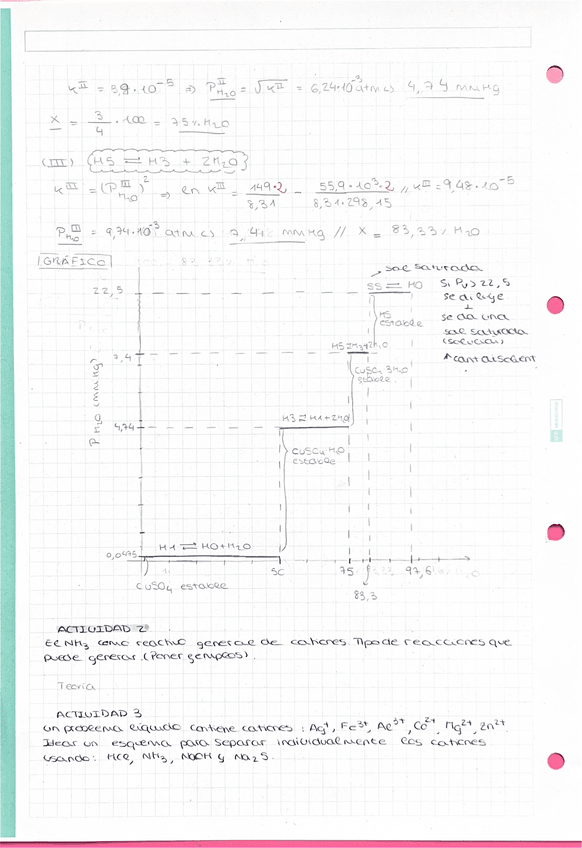 K^II = 3,9·10^-5 ⇒ P^II_H2O = √K^II = 6,24·10^-3 atm ⇔ 4,74 mmHg
X = 3/4 · 100 = 75% H2O
(III) {H5 ⇌ H3 + 2H2O}
K^III = (P^III_H2O)^2 ⇒ ln K^III = 149·2/8,31 − 55,9·10^3·2/8,31·298,15 // K^III = 9,48·10^-5
P^III_H2O = 9,74·10^-3 atm ⇔ 7,4 mmHg // X = 83,33% H2O
GRÁFICO
sal saturada
22,5
SS ⇌ H0
H5 estable
Si Pv > 22,5
se diluye
↓
se da una
sal saturada
(solución)
↑ cant disolvent
P H2O (mmHg)
7,4
H5 ⇌ H3+2H2O
CuSO4 3H2O
estable
4,74
H3 ⇌ H1+2H2O
CuSO4 H2O
estable
0,0475
H1 ⇌ H0+H2O
CuSO4 estable
50
75
83,3
97,6
ACTIVIDAD 2
El NH3 como reactivo general de cationes. Tipo de reacciones que
puede generar. (Poner ejemplos).
Teoría
ACTIVIDAD 3
Un problema líquido contiene cationes: Ag+, Fe3+, Al3+, Co2+, Mg2+, Zn2+.
Idear un esquema para separar individualmente los cationes
usando: HCl, NH3, NaOH y Na2S.